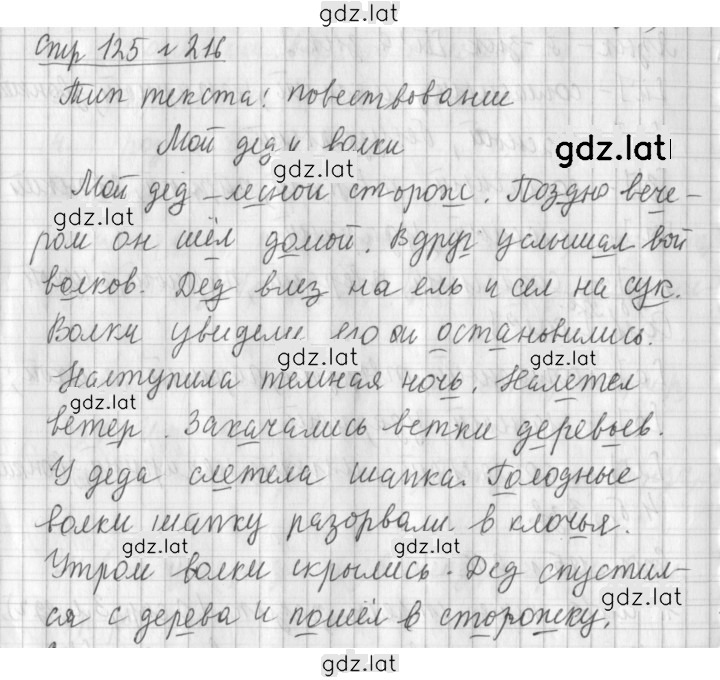 gdz.lat
Стр 125 № 216
Тип текста: повествование
Мой дед и волки
gdz.lat
gdz.lat
Мой дед - лесной сторож. Поздно вече-
gdz.lat
ром он шёл домой. Вдруг услышал вой
волков. Дед влез на ель и сел на сук.
Волки увидели его и остановились.
gdz.lat
gdz.lat
Наступила темная ночь. Налетел
gdz.lat
ветер. Закачались ветки деревьев.
У деда слетела шапка. Голодные
волки шапку разорвали в клочья.
gdz.lat
gdz.lat
Утром волки скрылись. Дед спустил-
gdz.lat
ся с дерева и пошёл в сторожку.
gdz.lat